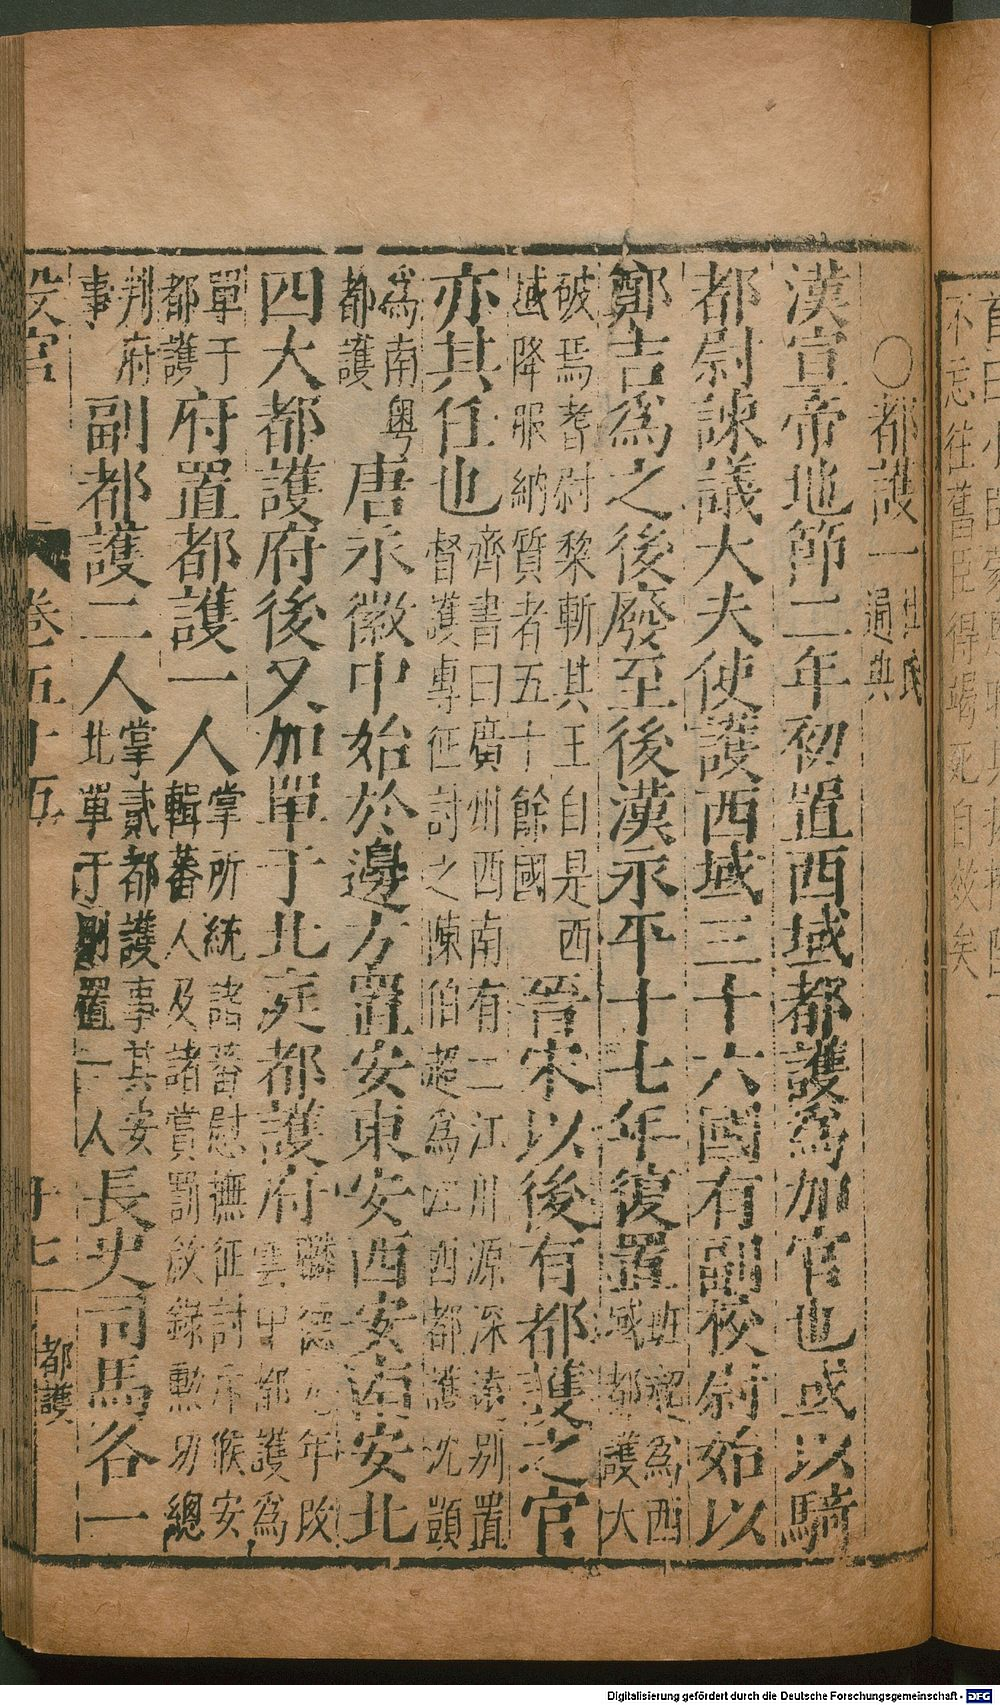 ○都護一杜氏通典
漢宣帝地節二年初置西域都護為加官也或以騎
都尉諫議大夫使護西域三十六國有副校尉始以
鄭吉爲之後廢至後漢永平十七年復置班超為西域都護大
破焉耆尉黎斬其王自是西域降服納質者五十餘國晉宋以後有都護之官
亦其任也齊書曰廣州西南有二江川源深遠别置督護專征討之陳伯超為江西都護沈顗
為南粤都護唐永徽中始於邊方置安東安西安南安北
四大都護府後又加單于北庭都護府麟德元年改雲中都護為
單于都護府置都護一人掌所統諸蕃慰撫征討斥候安輯蕃人及諸賞罰敘錄勲功總
判府事副都護二人掌貳都護事其安北單于則置一人長史司馬各一
設官 卷五十五 十七 都護
不忘往舊臣得竭死自效矣
Digitalisierung gefördert durch die Deutsche Forschungsgemeinschaft - DFG